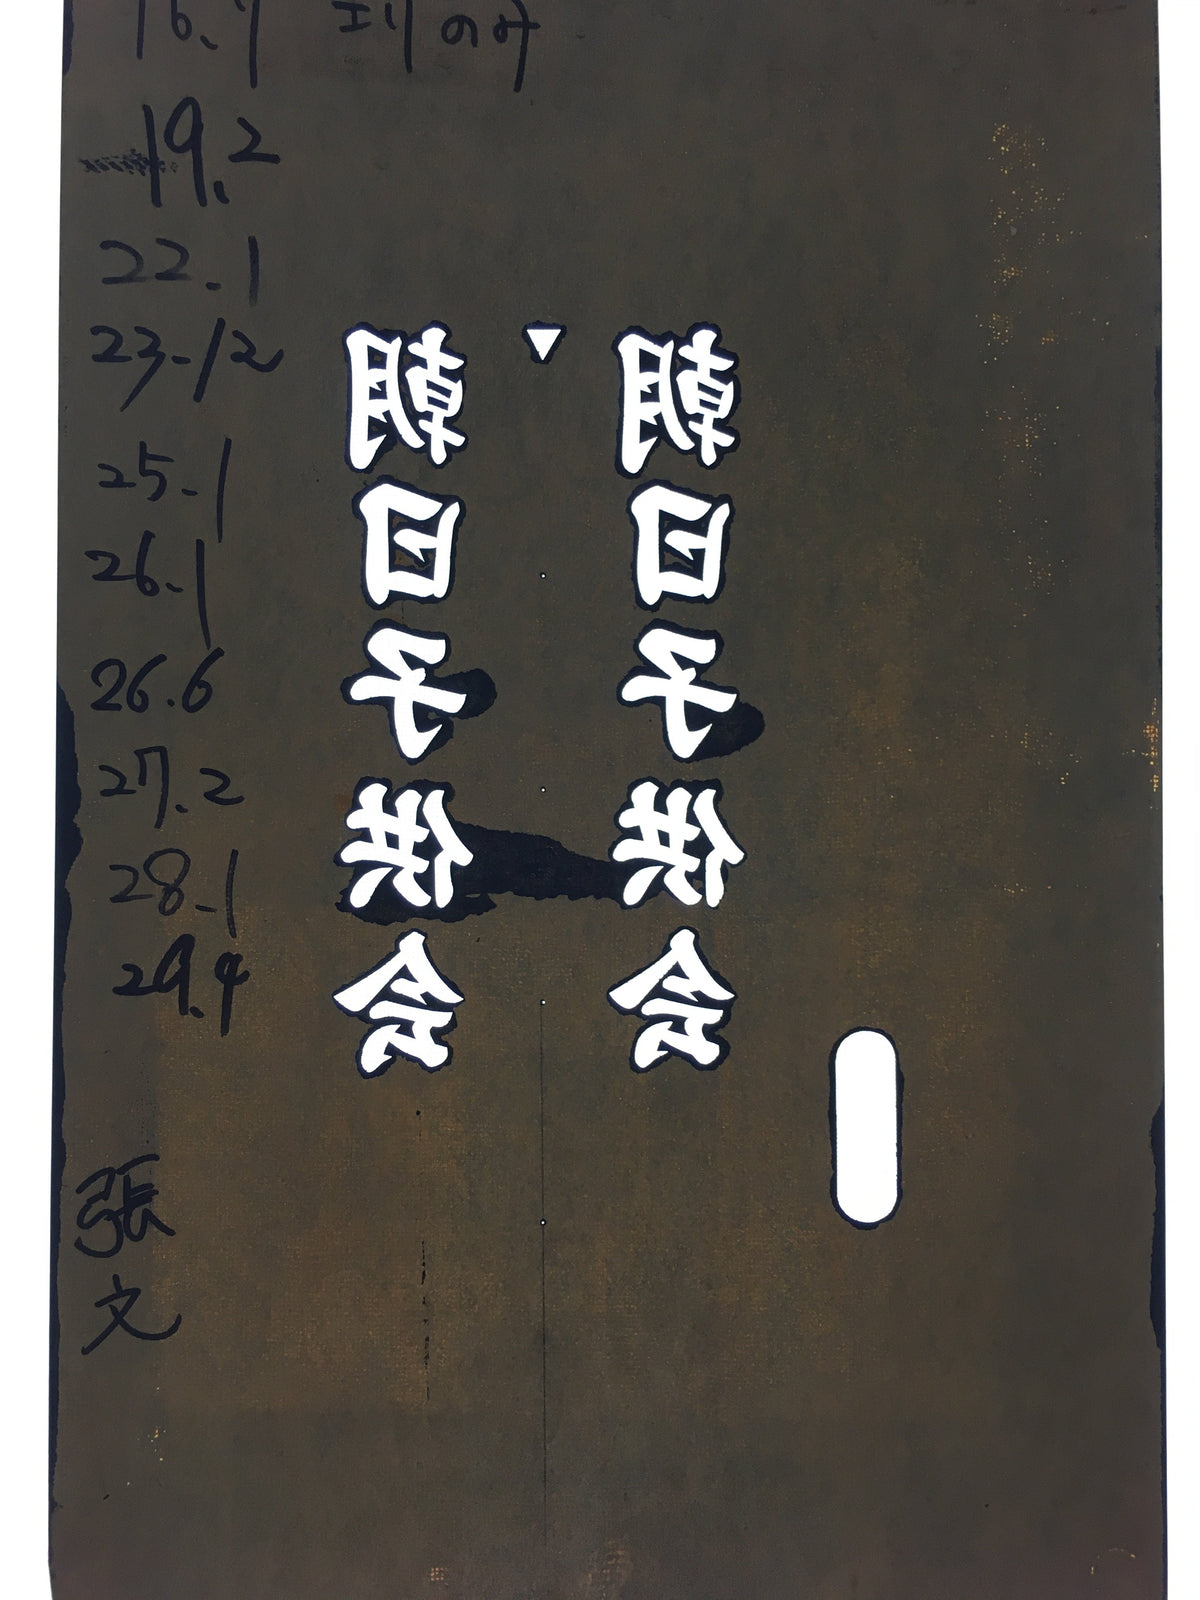 16.7 エリのみ
19.2
22.1
23-12
25-1
26-1
26.6
27.2
28-1
29.4
張
文
朝日子供会
朝日子供会